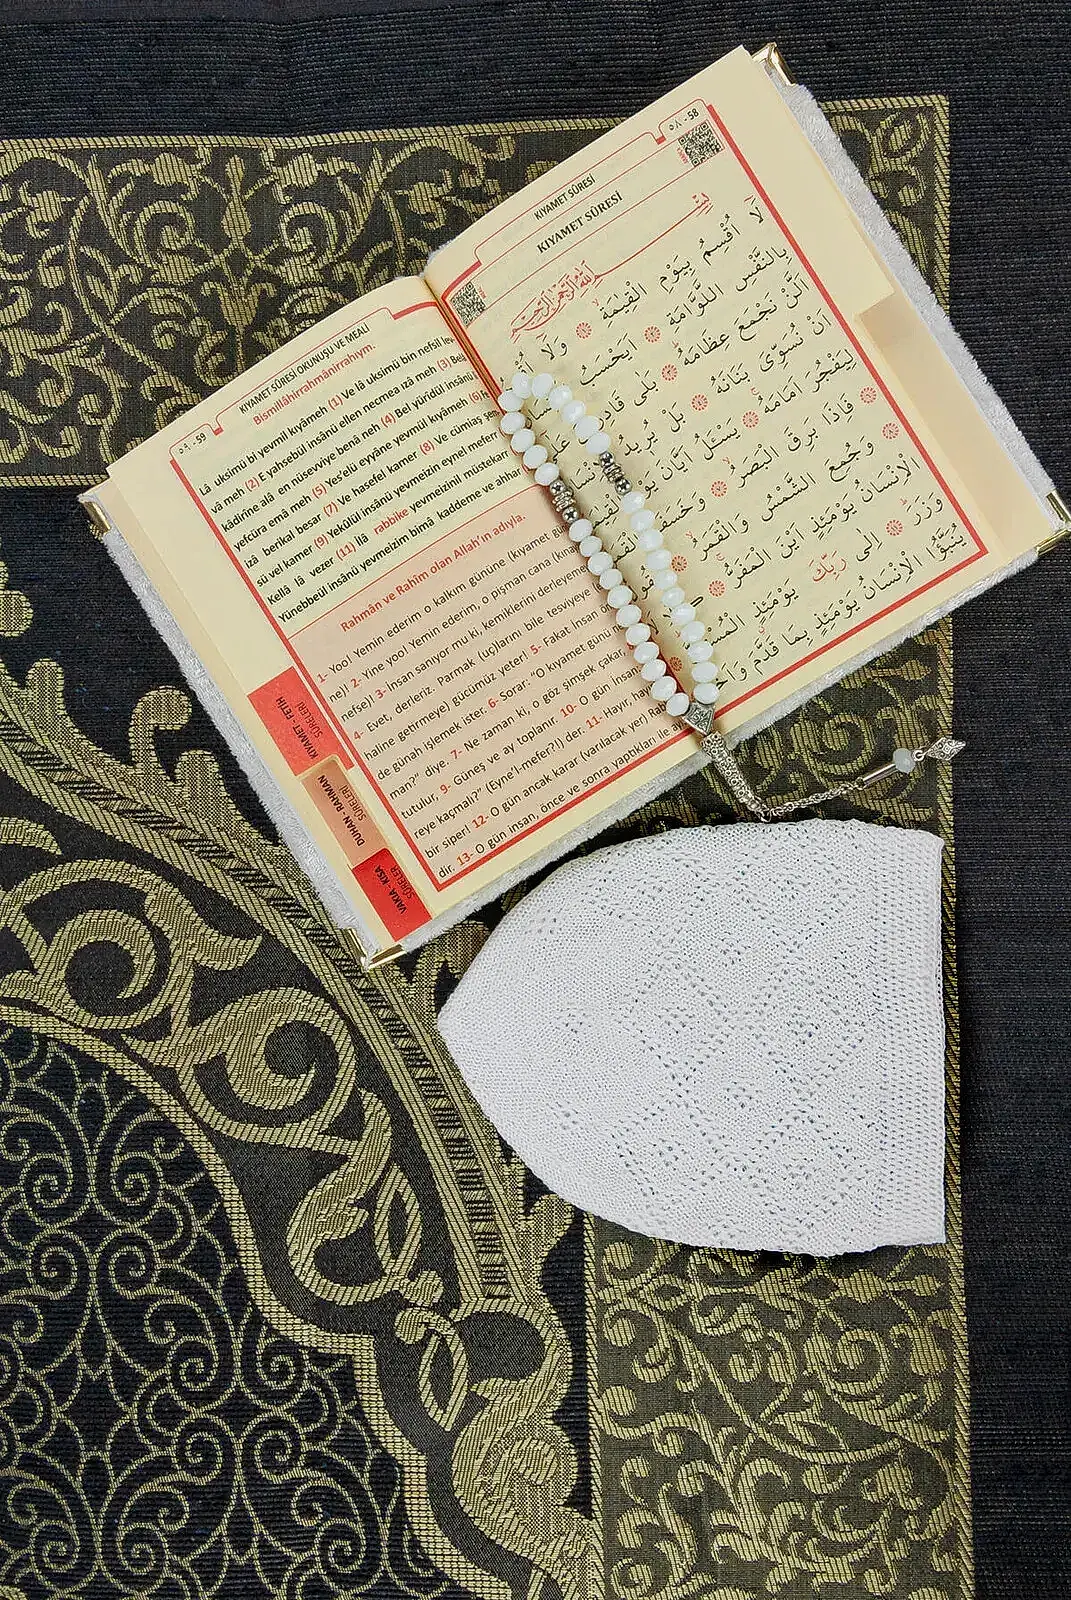 ٥٩ - 59
KIYAMET SÛRESİ OKUNUŞU VE MEALİ
Bismillâhirrahmânirrahıym.
Lâ uksimü bi yevmil kıyâmeh (1) Ve lâ uksimü bin nefsil
vâ meh (2) E yahsebül insânü ellen necmea ızâ meh (3)
kâdirîne alâ en nüsevviye benâ neh (4) Bel yürîdül insânü
yefcüra emâ meh (5) Yes'elü eyyâne yevmül kıyâmeh (6)
izâ berikal besar (7) Ve hasefel kamer (8) Ve cümiaş
sü vel kamer (9) Yekûlül insânü yevmeizin eynel mefer
Kellâ lâ vezer (11) İlâ rabbike yevmeizinil müstekar
Yünebbeül insânü yevmeizim bimâ kaddeme ve ahhar
Rahmân ve Rahîm olan Allah'ın adıyla.
1- Yoo! Yemin ederim o kalkım gününe (kıyamet
ne)! 2- Yine yoo! Yemin ederim, o pişman cana
nefse) 3- İnsan sanıyor mu ki, kemiklerini
4- Evet, derleriz. Parmak (uç)larını bile tesviyeye
haline getirmeye) gücümüz yeter! 5- Fakat İnsan
de günah işlemek ister. 6- Sorar: "O kıyamet günü
man?" diye. 7- Ne zaman ki, o göz şimşek çakar,
tutulur, 9- Güneş ve ay toplanır. 10- O gün İnsan
reye kaçmalı?" (Eyne'l-mefer?!) der. 11- Hayır,
bir siper! 12- O gün ancak karar (varılacak yer)
dir. 13- O gün insan, önce ve sonra yaptıkları ile
KIYAMET - FETİH
SÛRELERİ
DUHAN- RAHMAN
SÛRELERİ
VAKIA - KISA
SÛRELER
٥٨ - 58
KIYAMET SÛRESİ
KIYAMET SÛRESİ
بِسْمِ اللهِ الرَّحْمٰنِ الرَّحِيمِ
لَٓا اُقْسِمُ بِيَوْمِ الْقِيٰمَةِ وَلَٓا
بِالنَّفْسِ اللَّوَّامَةِ اَيَحْسَبُ
اَلَّنْ نَجْمَعَ عِظَامَهُ بَلٰى
اَنْ نُسَوِّىَ بَنَانَهُ بَلْ يُرِيدُ
لِيَفْجُرَ اَمَامَهُ يَسْـَٔلُ اَيَّانَ
فَاِذَا بَرِقَ الْبَصَرُ وَخَسَفَ
وَجُمِعَ الشَّمْسُ وَالْقَمَرُ
الْاِنْسَانُ يَوْمَئِذٍ اَيْنَ الْمَفَرُّ
وَزَرَ اِلٰى رَبِّكَ يَوْمَئِذٍ
يُنَبَّؤُا الْاِنْسَانُ يَوْمَئِذٍ بِمَا قَدَّمَ